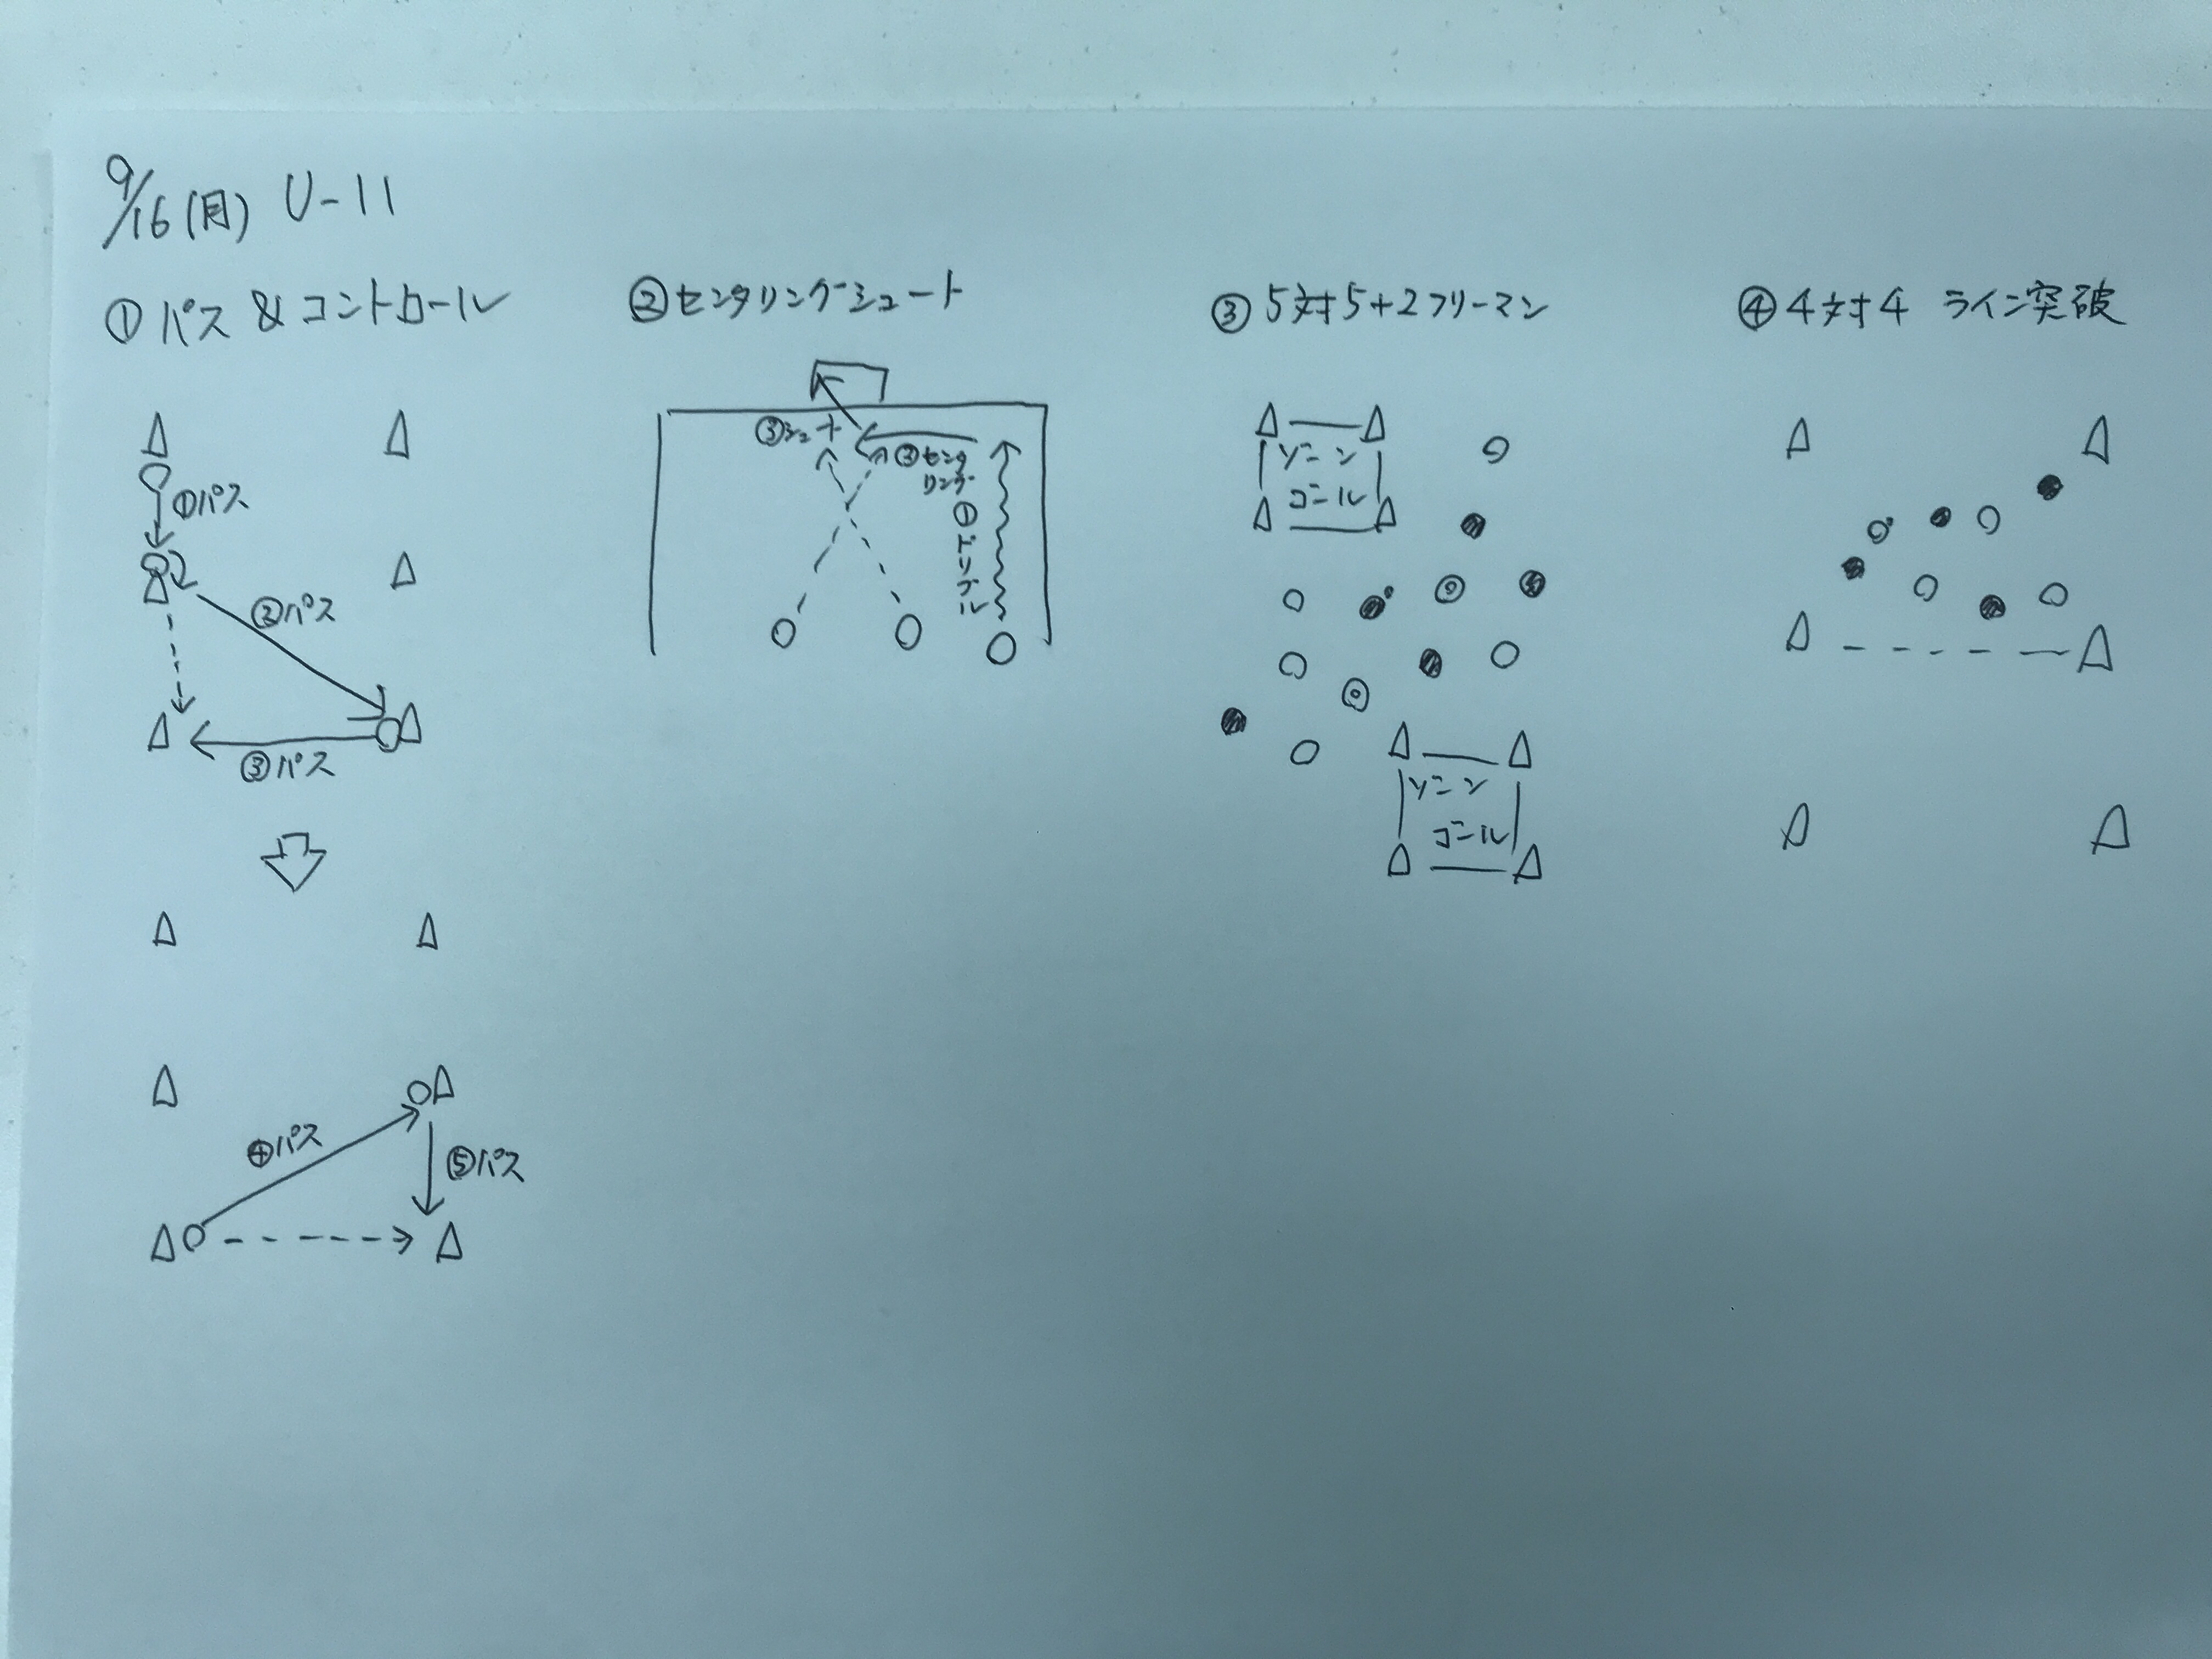 9/16(月) U-11
①パス&コントロール
①パス
②パス
③パス
④パス
⑤パス
②センタリングシュート
③シュート
②センタ
リング
①ドリブル
③5対5+2フリーマン
ゾーン
ゴール
ゾーン
ゴール
④4対4 ライン突破